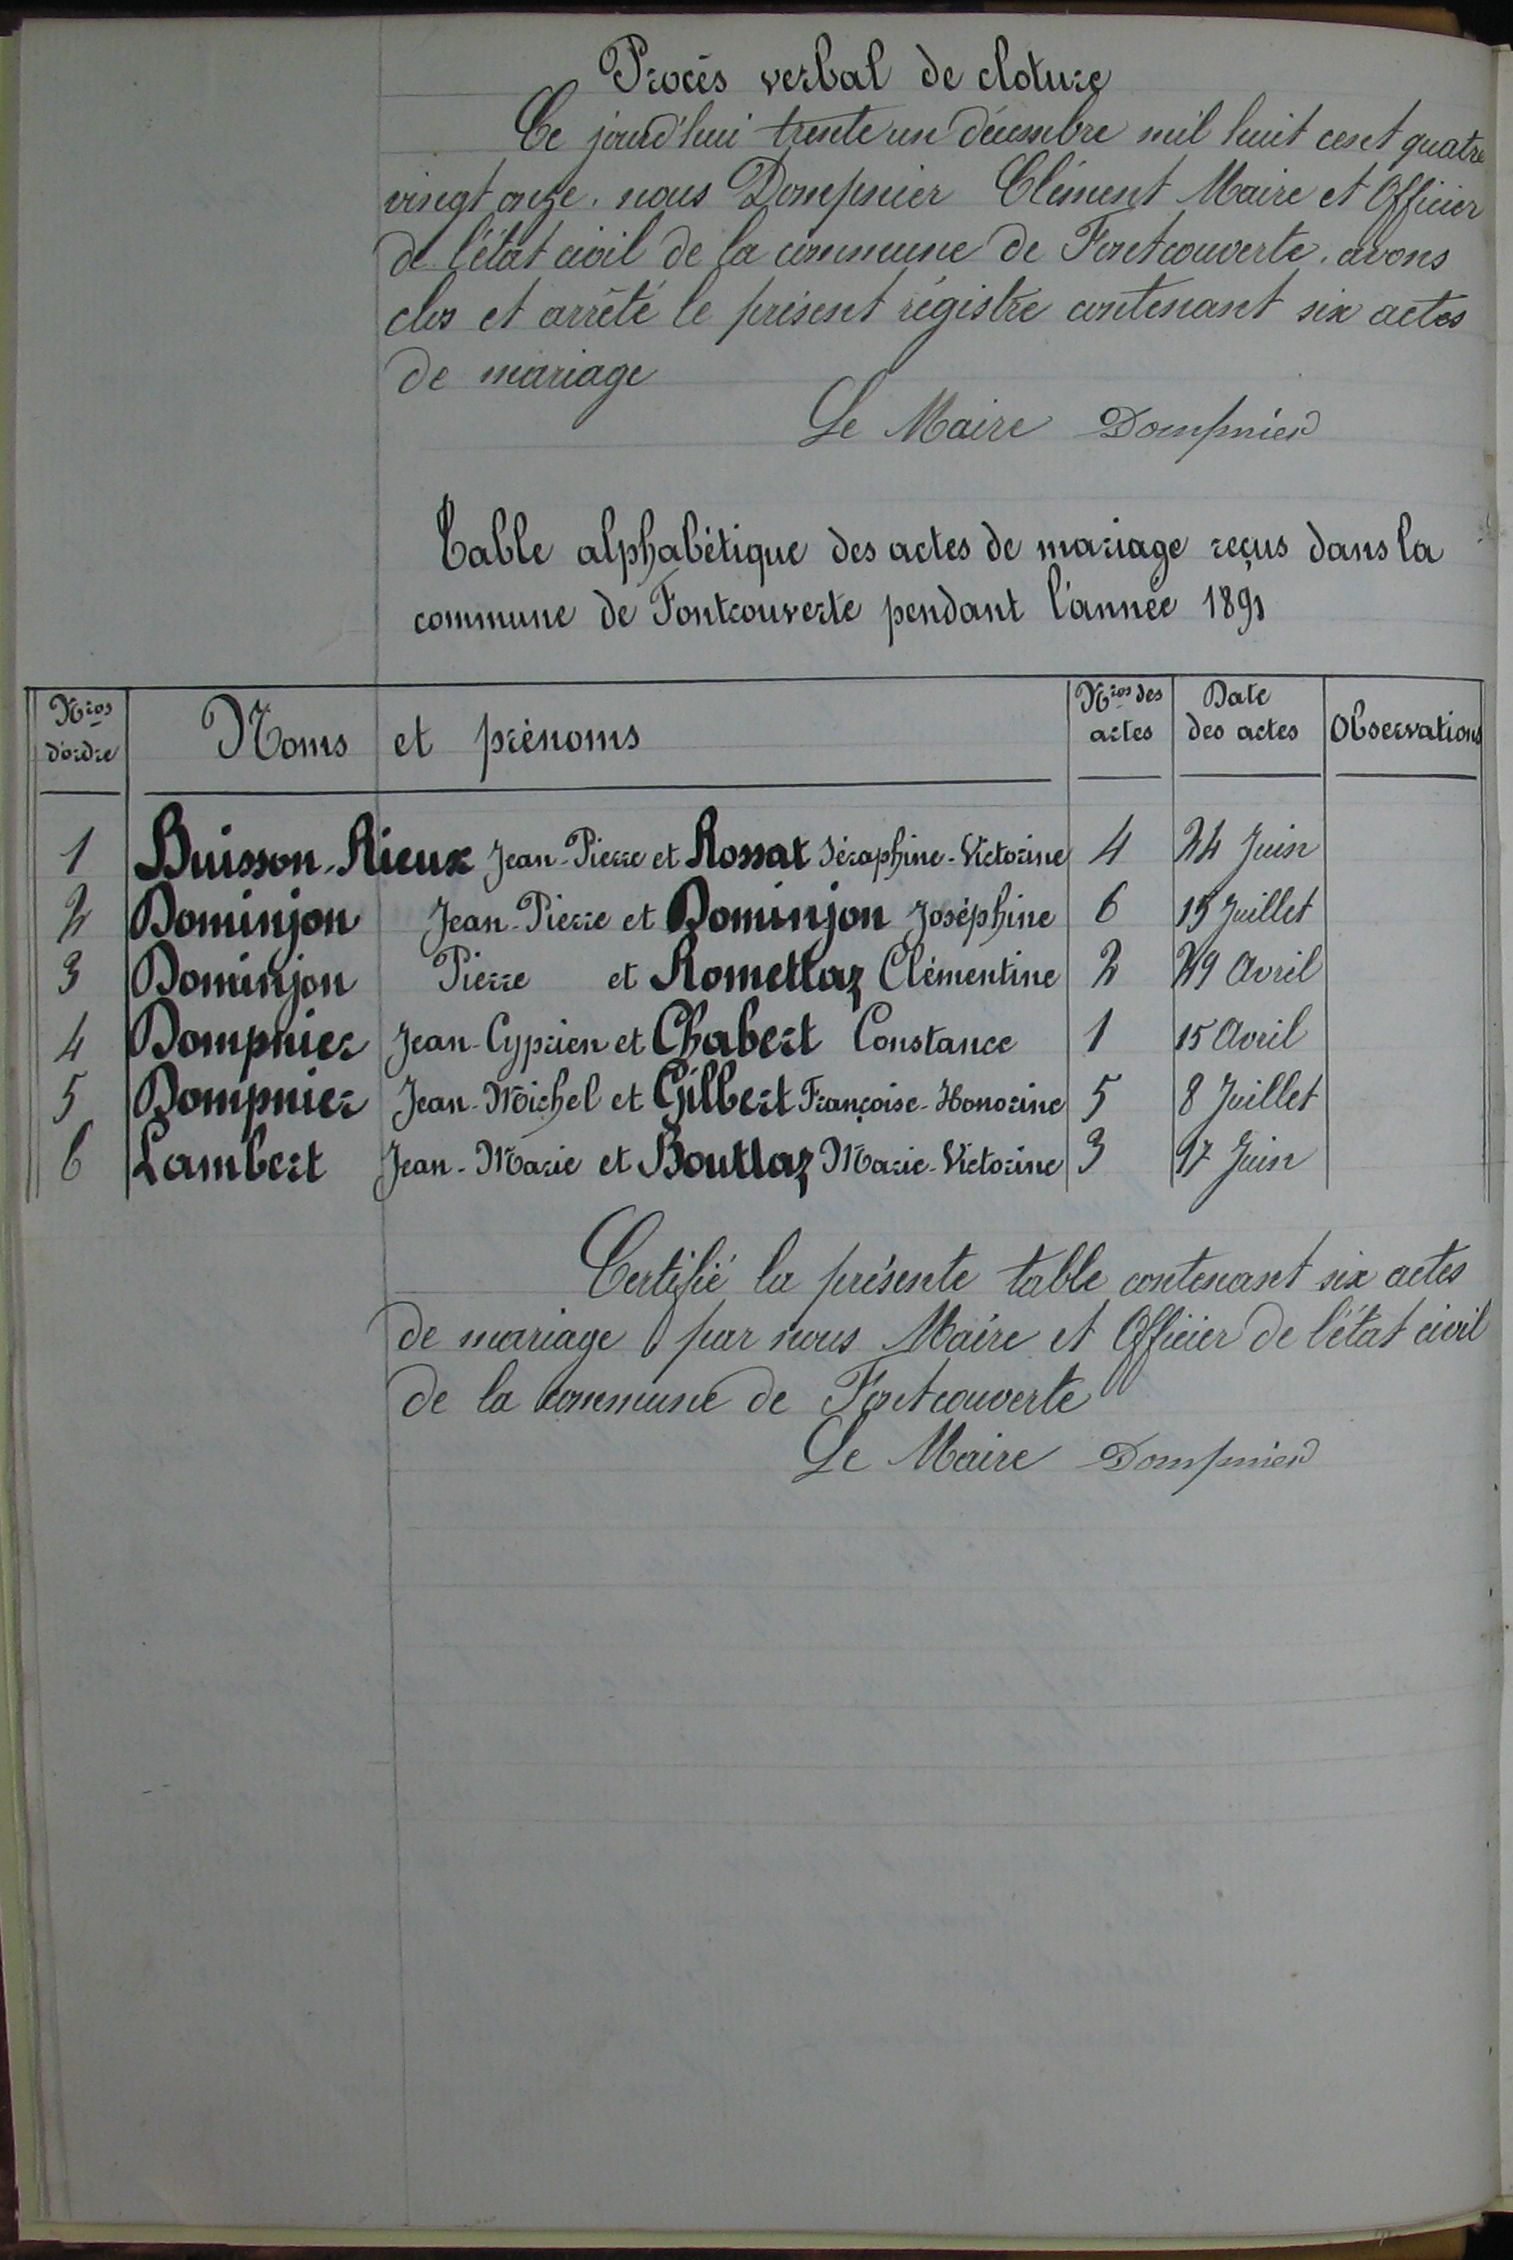 Procès verbal de cloture
Ce jourd'hui trente un décembre mil huit cent quatre
vingt onze. nous Dompnier Clément Maire et Officier
de l'état civil de la commune de Fontcouverte. avons
clos et arrêté le présent régistre contenant six actes
de mariage
Le Maire Dompnier
Table alphabétique des actes de mariage reçus dans la
commune de Fontcouverte pendant l'année 1891
Nros d'ordre Noms et prénoms Nros des actes Date des actes Observations
1 Buisson-Rieux Jean-Pierre et Rossat Séraphine-Victorine 4 24 Juin
2 Dominjon Jean-Pierre et Dominjon Joséphine 6 15 Juillet
3 Dominjon Pierre et Romettaz Clémentine 2 29 Avril
4 Dompnier Jean-Cyprien et Chabert Constance 1 15 Avril
5 Dompnier Jean-Michel et Gilbert Françoise-Honorine 5 8 Juillet
6 Lambert Jean-Marie et Bouttaz Marie-Victorine 3 17 Juin
Certifié la présente table contenant six actes
de mariage par nous Maire et Officier de l'état civil
de la commune de Fontcouverte
Le Maire Dompnier